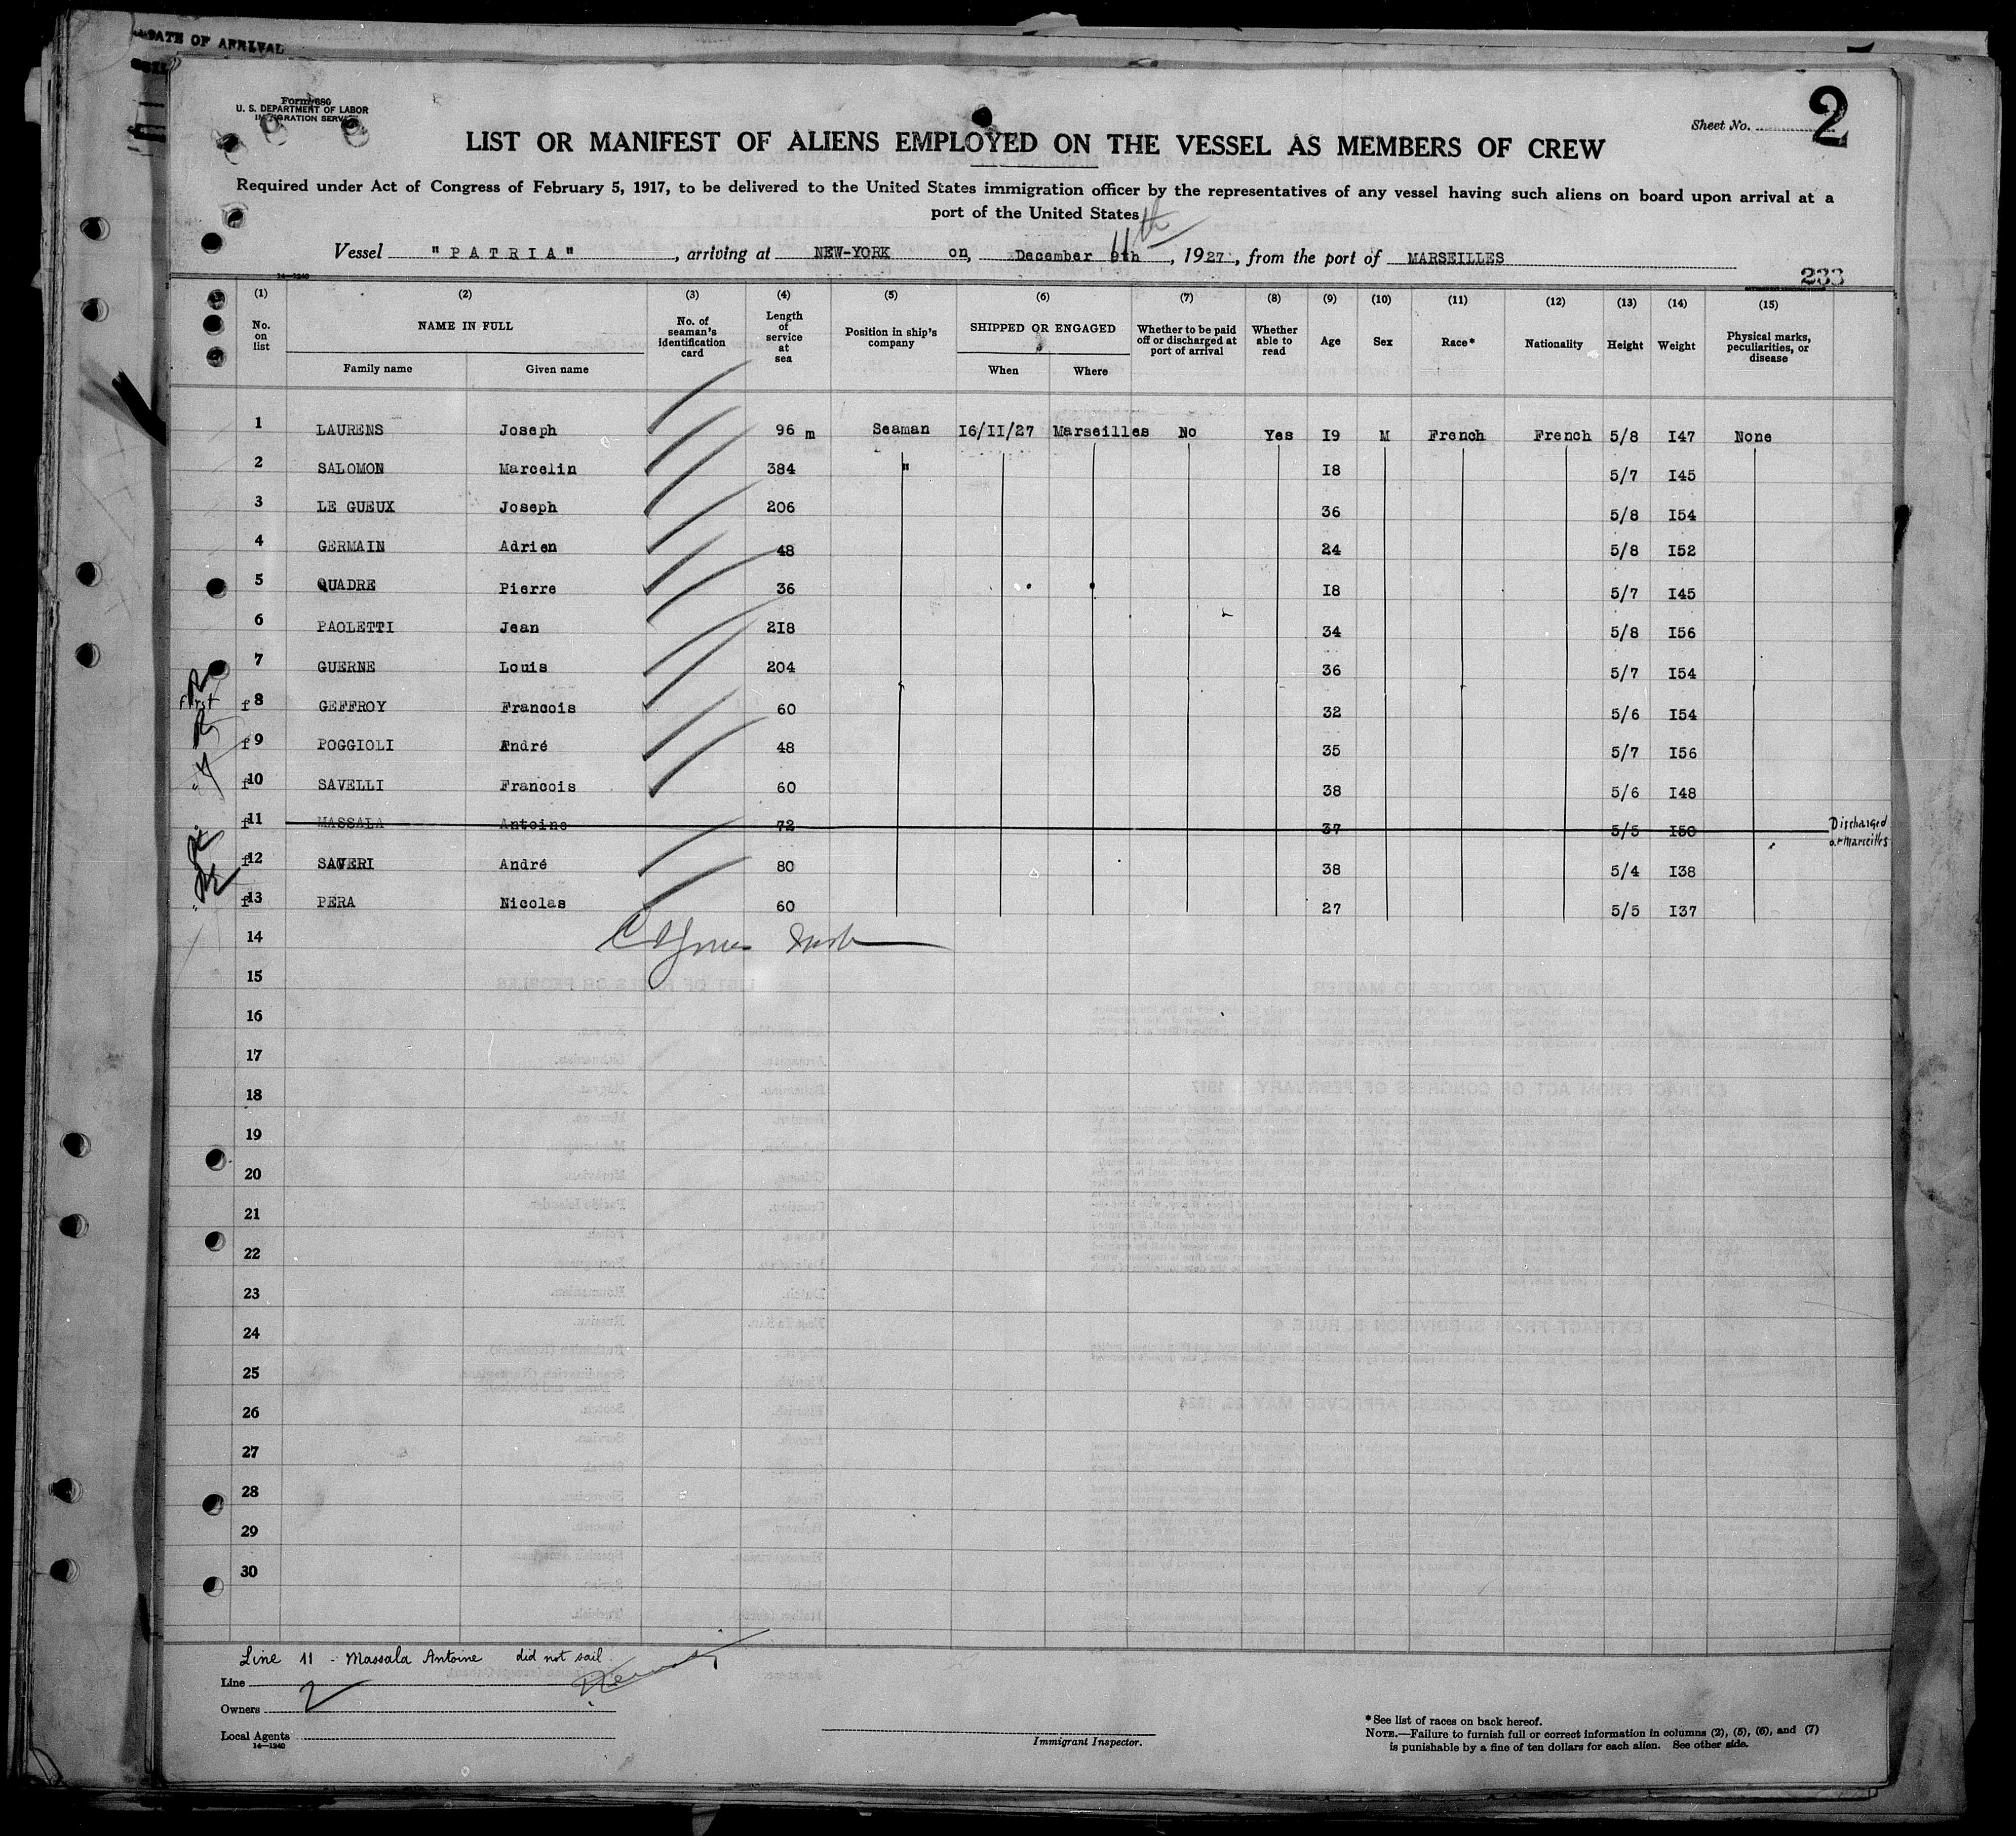 DATE OF ARRIVAL
Form 680
U. S. DEPARTMENT OF LABOR
IMMIGRATION SERVICE
Sheet No. 2
LIST OR MANIFEST OF ALIENS EMPLOYED ON THE VESSEL AS MEMBERS OF CREW
Required under Act of Congress of February 5, 1917, to be delivered to the United States immigration officer by the representatives of any vessel having such aliens on board upon arrival at a
port of the United States
Vessel "PATRIA", arriving at NEW-YORK on, December 9th 11th, 1927, from the port of MARSEILLES
14—1240
233
(1) (2) (3) (4) (5) (6) (7) (8) (9) (10) (11) (12) (13) (14) (15)
No. on list NAME IN FULL Family name Given name No. of seaman's identification card Length of service at sea Position in ship's company SHIPPED OR ENGAGED When Where Whether to be paid off or discharged at port of arrival Whether able to read Age Sex Race* Nationality Height Weight Physical marks, peculiarities, or disease
1 LAURENS Joseph 96 m Seaman I6/II/27 Marseilles No Yes I9 M French French 5/8 I47 None
2 SALOMON Marcelin 384 " I8 5/7 I45
3 LE GUEUX Joseph 206 36 5/8 I54
4 GERMAIN Adrien 48 24 5/8 I52
5 QUADRE Pierre 36 I8 5/7 I45
6 PAOLETTI Jean 2I8 34 5/8 I56
7 GUERNE Louis 204 36 5/7 I54
first f 8 GEFFROY Francois 60 32 5/6 I54
f 9 POGGIOLI André 48 35 5/7 I56
f 10 SAVELLI Francois 60 38 5/6 I48
f 11 MASSALA Antoine 72 37 5/5 I50 Discharged at Marseilles
f 12 SAVERI André 80 38 5/4 I38
f 13 PERA Nicolas 60 27 5/5 I37
14
15
16
17
18
19
20
21
22
23
24
25
26
27
28
29
30
Line 11 - Massala Antoine did not sail
Line
Owners
Local Agents
14—1240
Immigrant Inspector.
*See list of races on back hereof.
NOTE.—Failure to furnish full or correct information in columns (2), (5), (6), and (7)
is punishable by a fine of ten dollars for each alien. See other side.